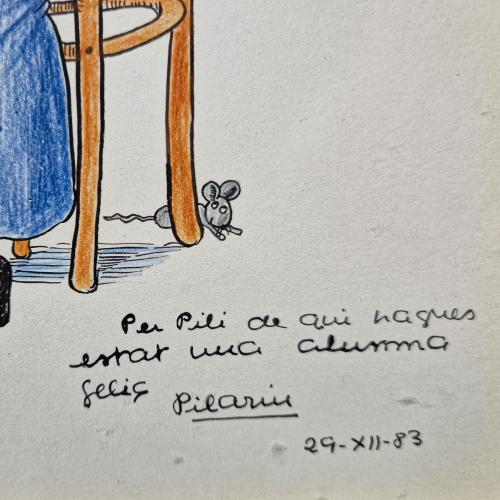 Per Pili de qui hagues
estat una alumna
feliç
Pilarin
29-XII-83